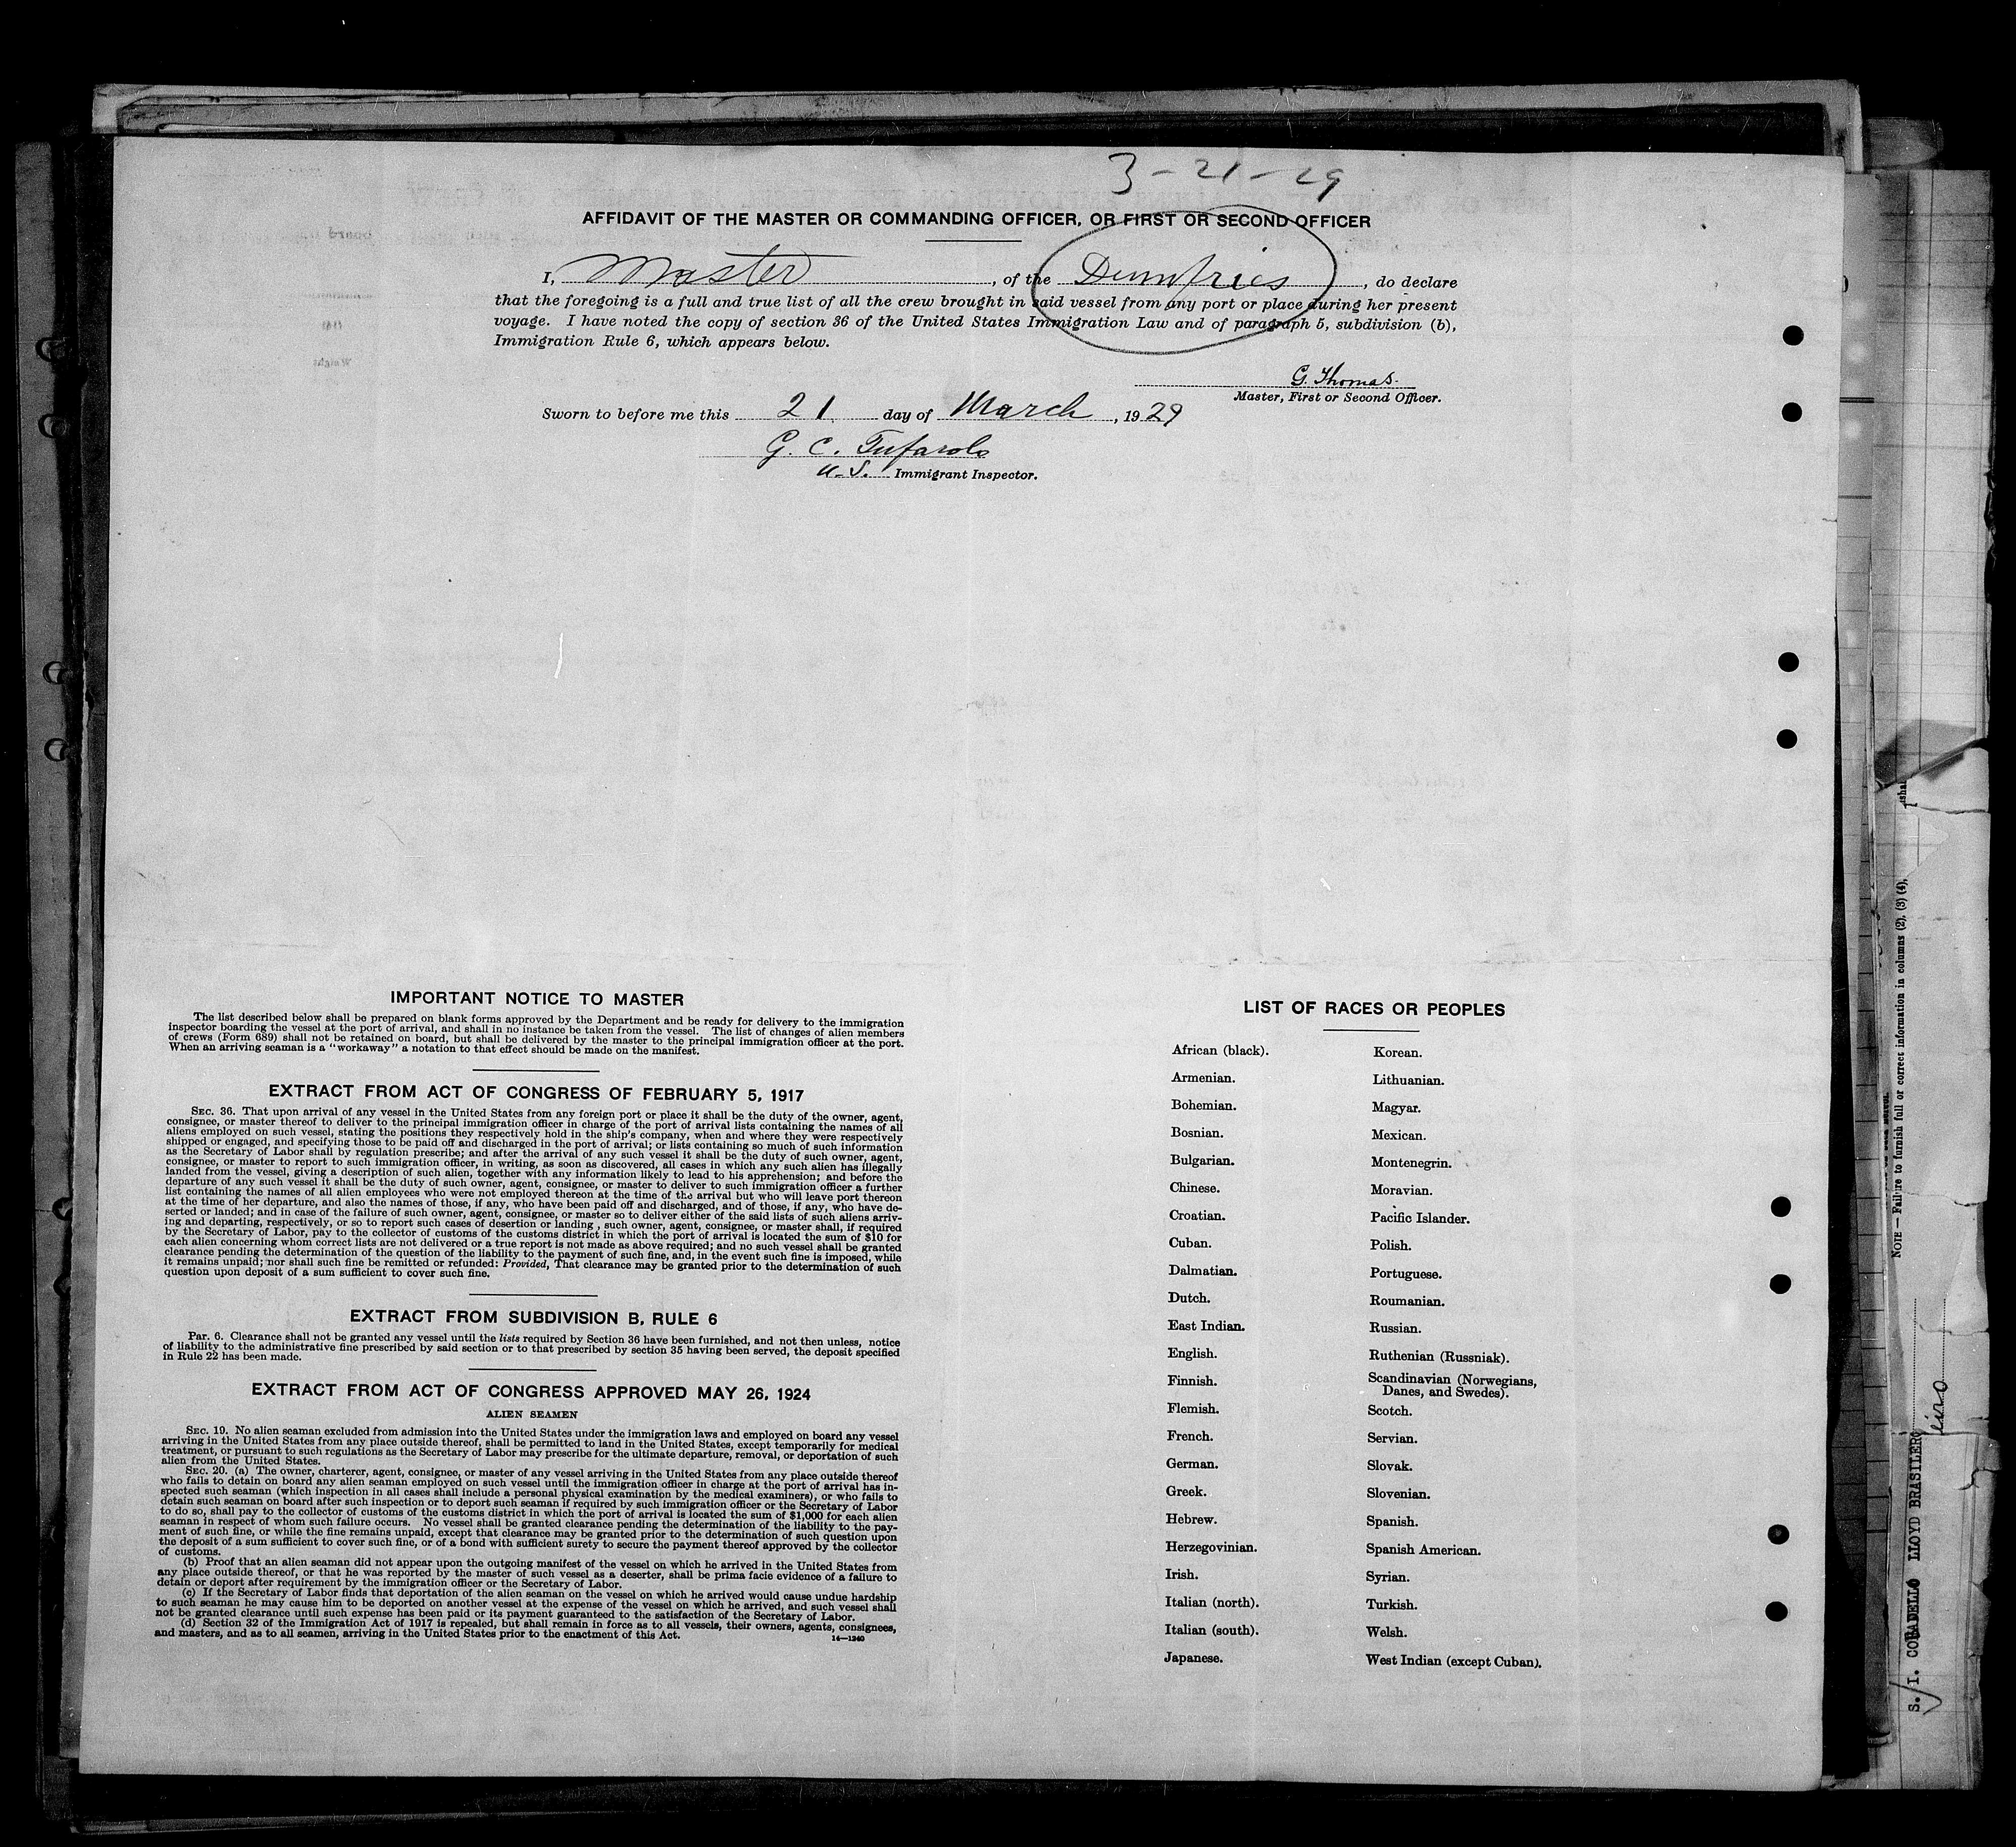 3-21-29
AFFIDAVIT OF THE MASTER OR COMMANDING OFFICER, OR FIRST OR SECOND OFFICER
I, Master, of the Dumfries, do declare
that the foregoing is a full and true list of all the crew brought in said vessel from any port or place during her present
voyage. I have noted the copy of section 36 of the United States Immigration Law and of paragraph 5, subdivision (b),
Immigration Rule 6, which appears below.
G. Thomas.
Master, First or Second Officer.
Sworn to before me this 21 day of March, 1929
G. C. Tufarolo
U.S. Immigrant Inspector.
IMPORTANT NOTICE TO MASTER
The list described below shall be prepared on blank forms approved by the Department and be ready for delivery to the immigration
inspector boarding the vessel at the port of arrival, and shall in no instance be taken from the vessel. The list of changes of alien members
of crews (Form 689) shall not be retained on board, but shall be delivered by the master to the principal immigration officer at the port.
When an arriving seaman is a "workaway" a notation to that effect should be made on the manifest.
EXTRACT FROM ACT OF CONGRESS OF FEBRUARY 5, 1917
SEC. 36. That upon arrival of any vessel in the United States from any foreign port or place it shall be the duty of the owner, agent,
consignee, or master thereof to deliver to the principal immigration officer in charge of the port of arrival lists containing the names of all
aliens employed on such vessel, stating the positions they respectively hold in the ship's company, when and where they were respectively
shipped or engaged, and specifying those to be paid off and discharged in the port of arrival; or lists containing so much of such information
as the Secretary of Labor shall by regulation prescribe; and after the arrival of any such vessel it shall be the duty of such owner, agent,
consignee, or master to report to such immigration officer, in writing, as soon as discovered, all cases in which any such alien has illegally
landed from the vessel, giving a description of such alien, together with any information likely to lead to his apprehension; and before the
departure of any such vessel it shall be the duty of such owner, agent, consignee, or master to deliver to such immigration officer a further
list containing the names of all alien employees who were not employed thereon at the time of the arrival but who will leave port thereon
at the time of her departure, and also the names of those, if any, who have been paid off and discharged, and of those, if any, who have de-
serted or landed; and in case of the failure of such owner, agent, consignee, or master so to deliver either of the said lists of such aliens arriv-
ing and departing, respectively, or so to report such cases of desertion or landing, such owner, agent, consignee, or master shall, if required
by the Secretary of Labor, pay to the collector of customs of the customs district in which the port of arrival is located the sum of $10 for
each alien concerning whom correct lists are not delivered or a true report is not made as above required; and no such vessel shall be granted
clearance pending the determination of the question of the liability to the payment of such fine, and, in the event such fine is imposed, while
it remains unpaid; nor shall such fine be remitted or refunded: Provided, That clearance may be granted prior to the determination of such
question upon deposit of a sum sufficient to cover such fine.
EXTRACT FROM SUBDIVISION B, RULE 6
Par. 6. Clearance shall not be granted any vessel until the lists required by Section 36 have been furnished, and not then unless, notice
of liability to the administrative fine prescribed by said section or to that prescribed by section 35 having been served, the deposit specified
in Rule 22 has been made.
EXTRACT FROM ACT OF CONGRESS APPROVED MAY 26, 1924
ALIEN SEAMEN
SEC. 19. No alien seaman excluded from admission into the United States under the immigration laws and employed on board any vessel
arriving in the United States from any place outside thereof, shall be permitted to land in the United States, except temporarily for medical
treatment, or pursuant to such regulations as the Secretary of Labor may prescribe for the ultimate departure, removal, or deportation of such
alien from the United States.
SEC. 20. (a) The owner, charterer, agent, consignee, or master of any vessel arriving in the United States from any place outside thereof
who fails to detain on board any alien seaman employed on such vessel until the immigration officer in charge at the port of arrival has in-
spected such seaman (which inspection in all cases shall include a personal physical examination by the medical examiners), or who fails to
detain such seaman on board after such inspection or to deport such seaman if required by such immigration officer or the Secretary of Labor
to do so, shall pay to the collector of customs of the customs district in which the port of arrival is located the sum of $1,000 for each alien
seaman in respect of whom such failure occurs. No vessel shall be granted clearance pending the determination of the liability to the pay-
ment of such fine, or while the fine remains unpaid, except that clearance may be granted prior to the determination of such question upon
the deposit of a sum sufficient to cover such fine, or of a bond with sufficient surety to secure the payment thereof approved by the collector
of customs.
(b) Proof that an alien seaman did not appear upon the outgoing manifest of the vessel on which he arrived in the United States from
any place outside thereof, or that he was reported by the master of such vessel as a deserter, shall be prima facie evidence of a failure to
detain or deport after requirement by the immigration officer or the Secretary of Labor.
(c) If the Secretary of Labor finds that deportation of the alien seaman on the vessel on which he arrived would cause undue hardship
to such seaman he may cause him to be deported on another vessel at the expense of the vessel on which he arrived, and such vessel shall
not be granted clearance until such expense has been paid or its payment guaranteed to the satisfaction of the Secretary of Labor.
(d) Section 32 of the Immigration Act of 1917 is repealed, but shall remain in force as to all vessels, their owners, agents, consignees,
and masters, and as to all seamen, arriving in the United States prior to the enactment of this Act.
14—1240
LIST OF RACES OR PEOPLES
African (black).
Armenian.
Bohemian.
Bosnian.
Bulgarian.
Chinese.
Croatian.
Cuban.
Dalmatian.
Dutch.
East Indian.
English.
Finnish.
Flemish.
French.
German.
Greek.
Hebrew.
Herzegovinian.
Irish.
Italian (north).
Italian (south).
Japanese.
Korean.
Lithuanian.
Magyar.
Mexican.
Montenegrin.
Moravian.
Pacific Islander.
Polish.
Portuguese.
Roumanian.
Russian.
Ruthenian (Russniak).
Scandinavian (Norwegians,
Danes, and Swedes).
Scotch.
Servian.
Slovak.
Slovenian.
Spanish.
Spanish American.
Syrian.
Turkish.
Welsh.
West Indian (except Cuban).
NOTE — Failure to furnish full or correct information in columns (2), (3) (4),
shal
LLOYD BRASILERO